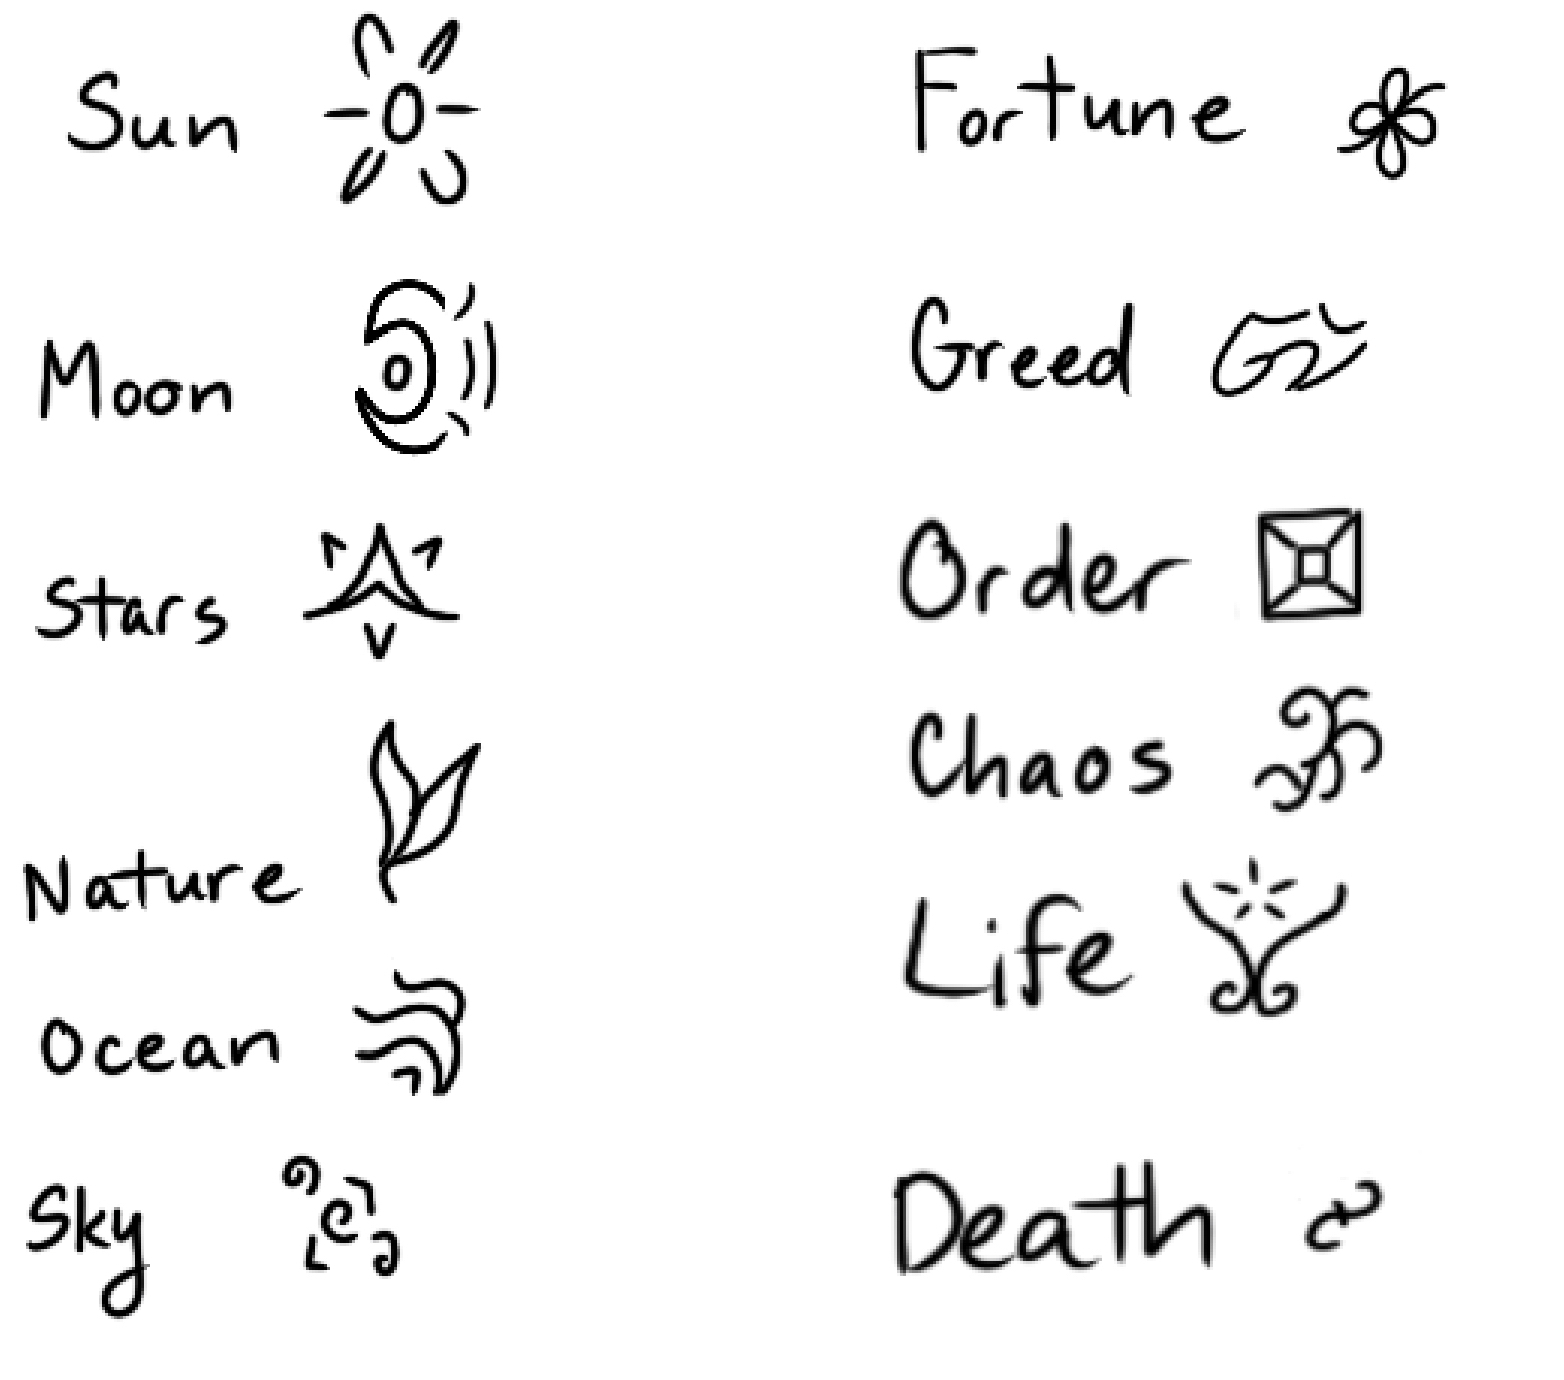 Sun
Moon
Stars
Nature
Ocean
Sky
Fortune
Greed
Order
Chaos
Life
Death